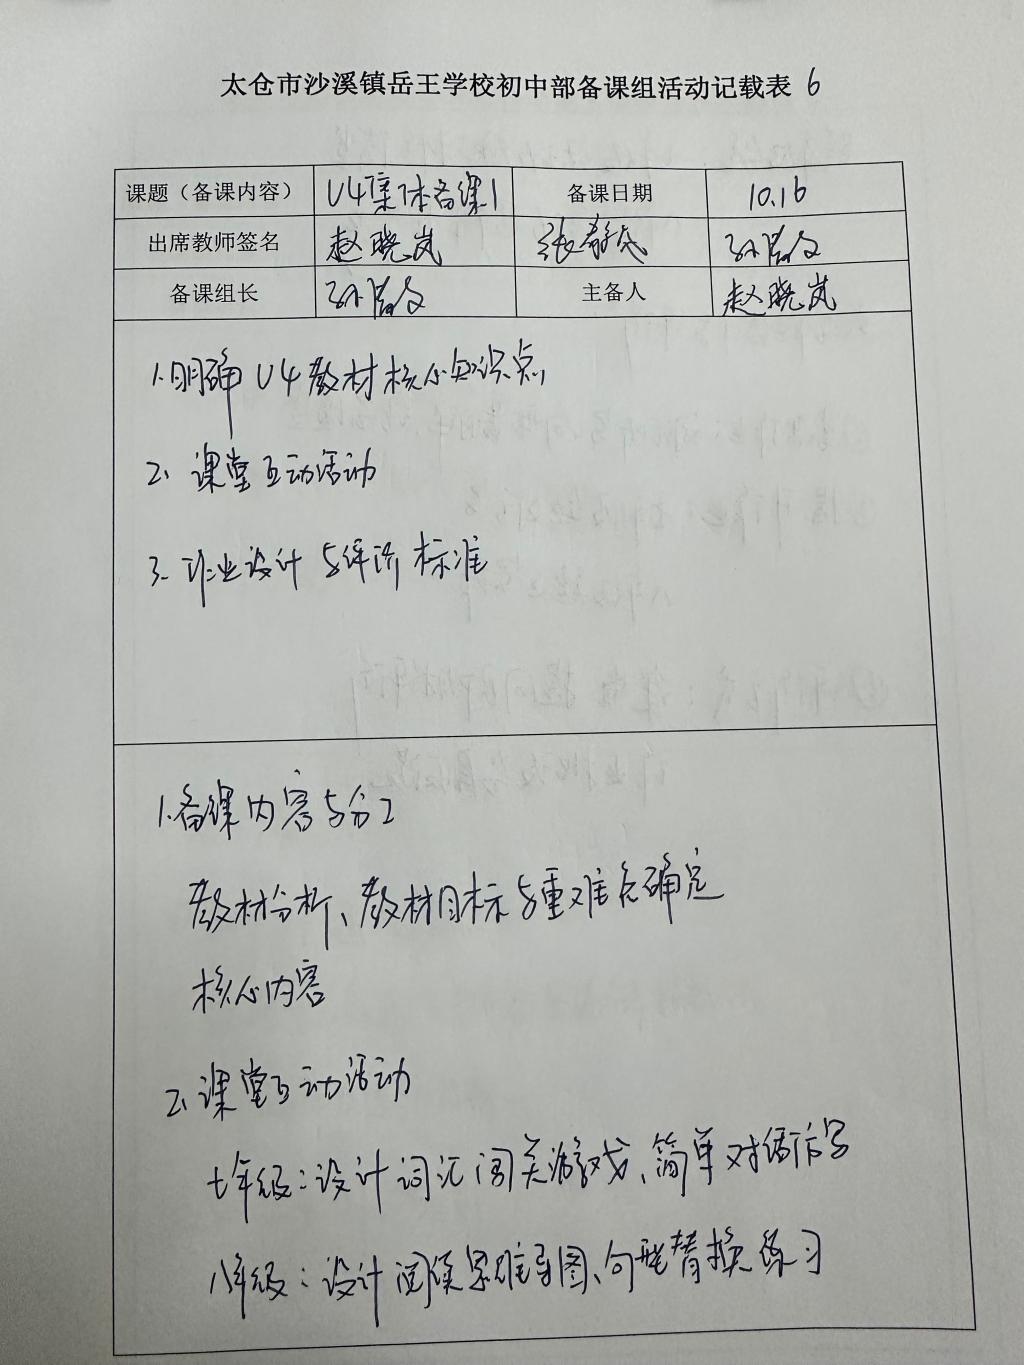 太仓市沙溪镇岳王学校初中部备课组活动记载表 6
课题（备课内容） U4集体备课1 备课日期 10.16
出席教师签名 赵晓岚
备课组长 主备人 赵晓岚
1.明确U4教材核心知识点
2. 课堂互动活动
3. 作业设计与评价标准
1.备课内容与分工
教材分析、教材目标与重难点确定
核心内容
2.课堂互动活动
七年级：设计词汇闯关游戏、简单对话仿写
八年级：设计阅读思维导图、句型替换练习